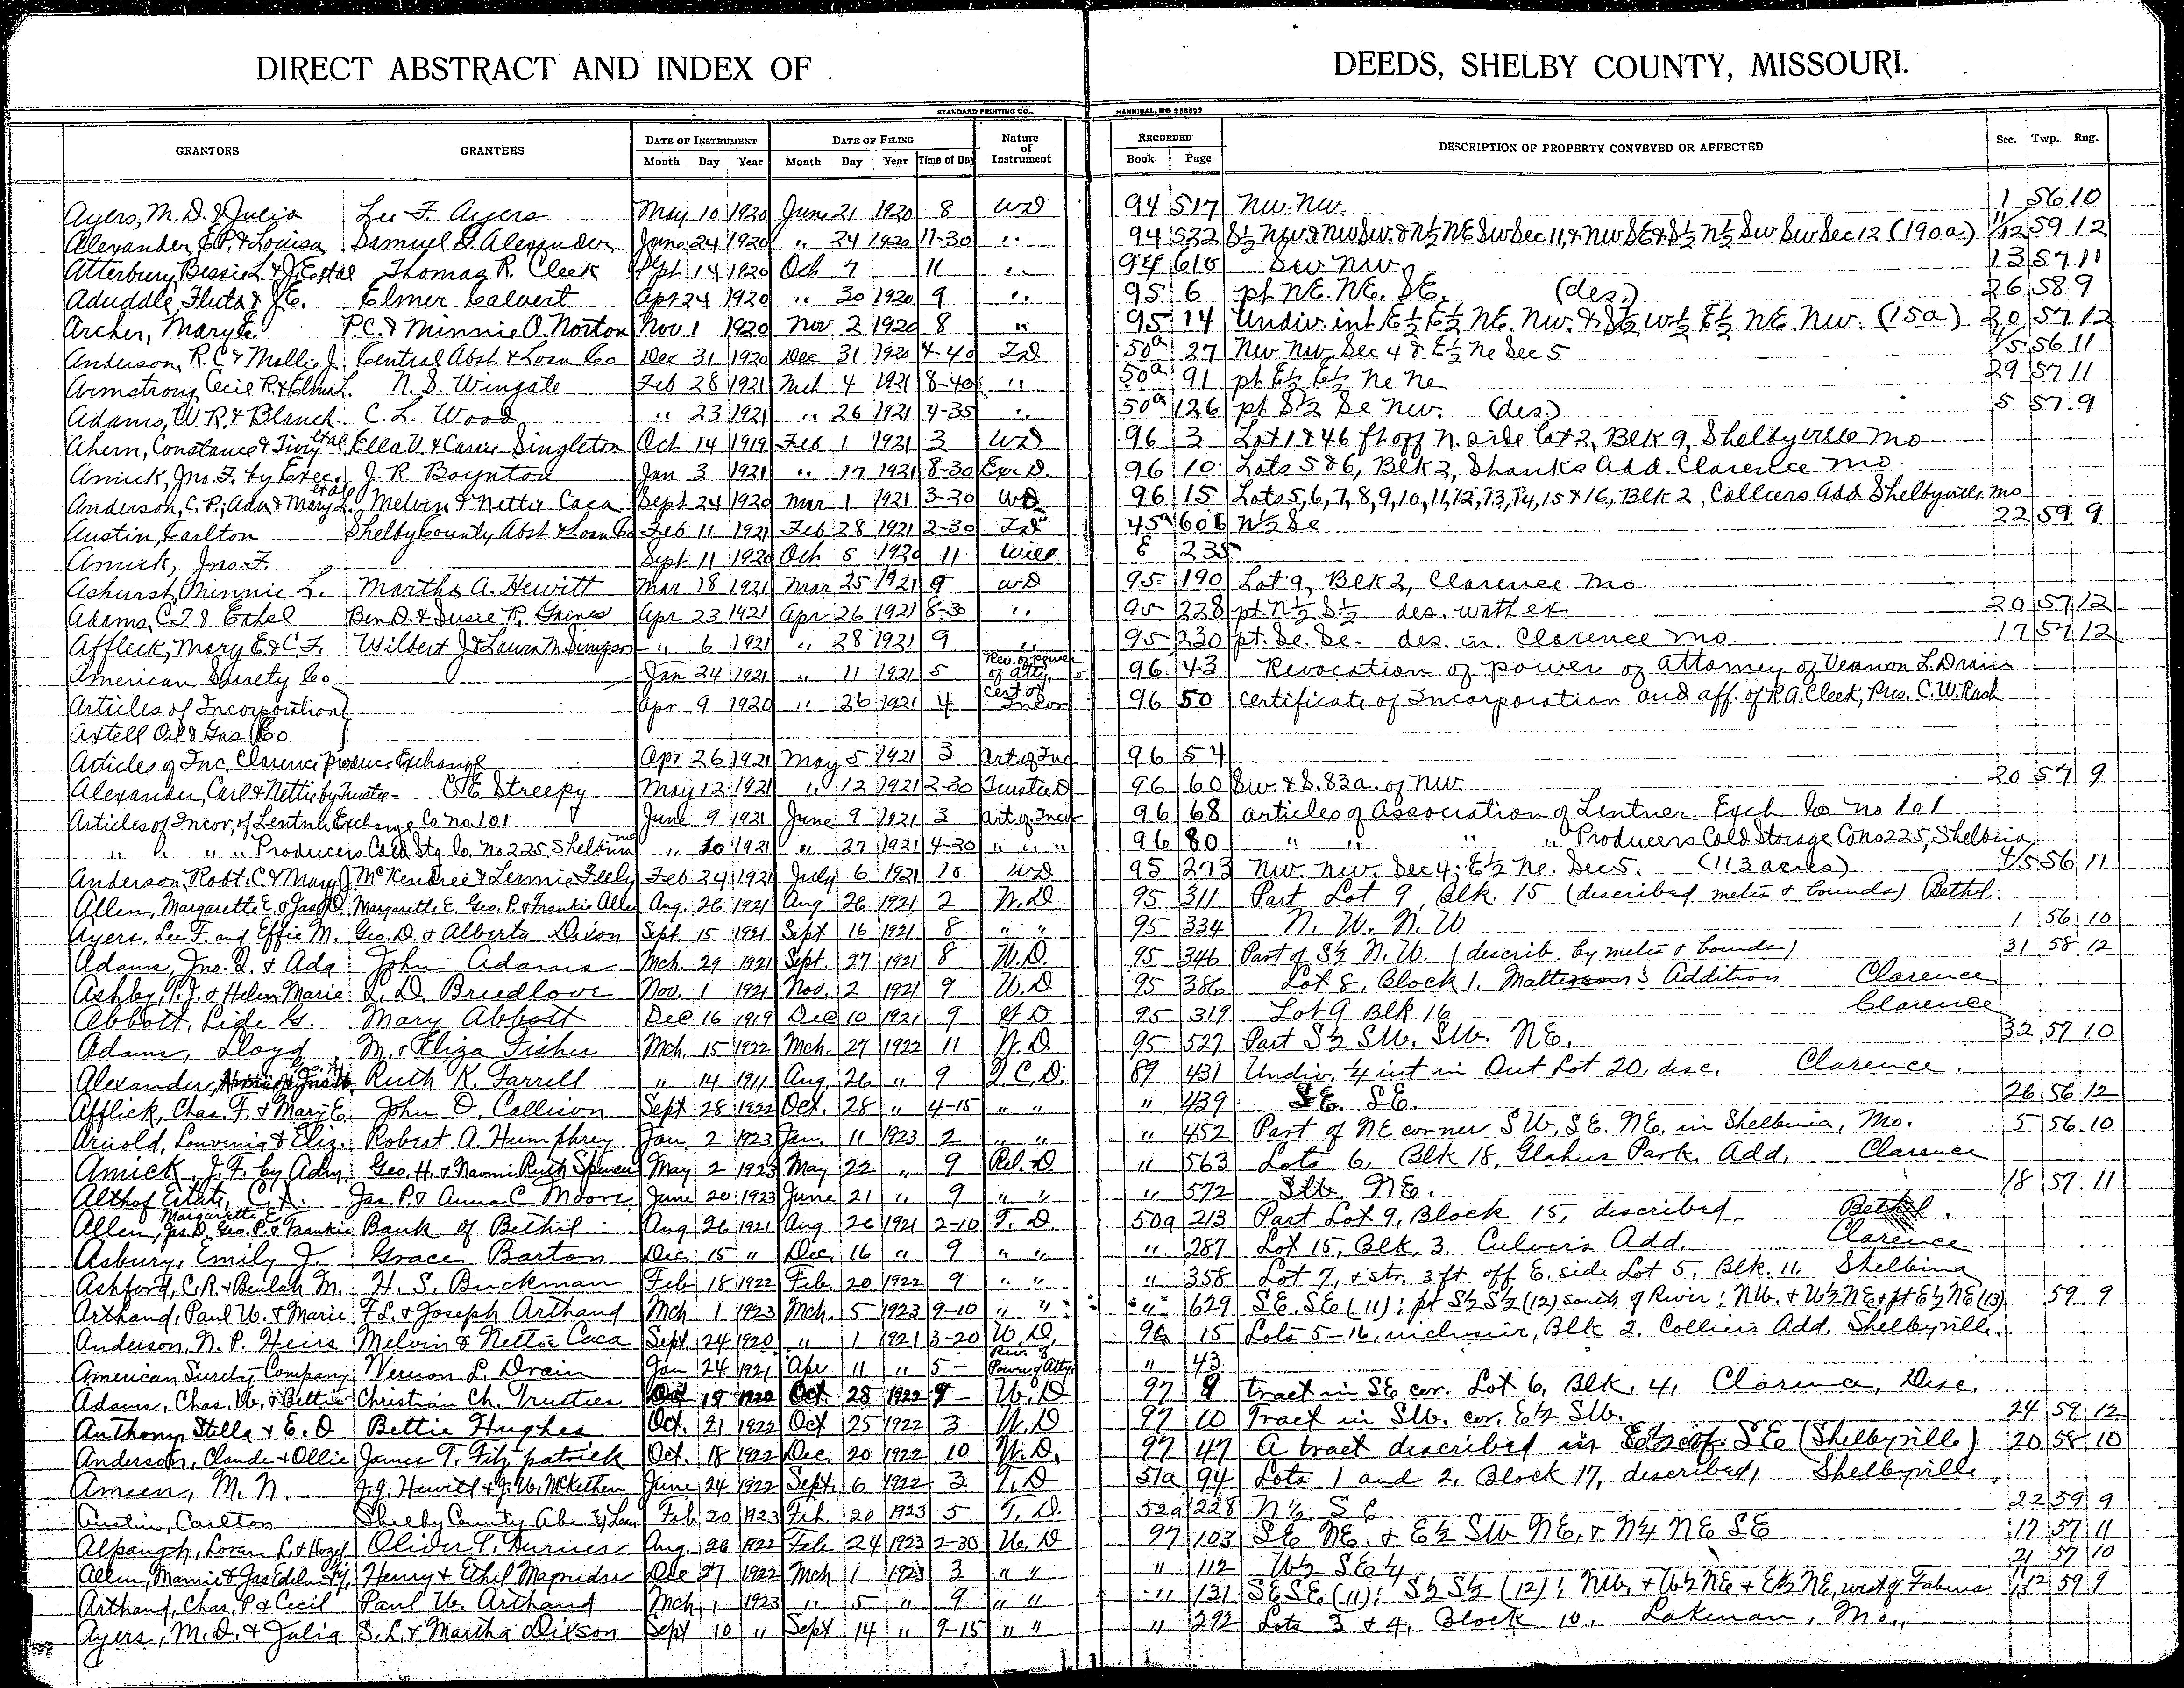 DIRECT ABSTRACT AND INDEX OF DEEDS, SHELBY COUNTY, MISSOURI.
STANDARD PRINTING CO., HANNIBAL, NO 258697
GRANTORS GRANTEES DATE OF INSTRUMENT DATE OF FILING Nature of Instrument RECORDED DESCRIPTION OF PROPERTY CONVEYED OR AFFECTED Sec. Twp. Rng.
Month Day Year Month Day Year Time of Day Book Page
Ayers, M. D. & Julia Lee F. Ayers May 10 1920 June 21 1920 8 WD 94 517 NW. NW. 1 56 10
Alexander, E.P. & Louisa Samuel G. Alexander June 24 1920 " 24 1920 11-30 " 94 522 S½ NW. & NW SW. & N½ NE SW Sec 11, & NW SE & S½ N½ SW SW Sec 12 (190a) 11/12 59 12
Atterbury, Bessie L. & J.E. et al Thomas R. Cleek Sept 14 1920 Oct 7 11 " 94 610 SW NW. 13 57 11
Aduddle, Fluta & J.E. Elmer Calvert Apr 24 1920 " 30 1920 9 " 95 6 pt NE. NE. SE. (des.) 26 58 9
Archer, Mary E. P.C. & Minnie O. Norton Nov 1 1920 Nov 2 1920 8 " 95 14 Undiv. int E½ E½ NE. NW. & S½ W½ E½ NE. NW. (15a) 20 57 12
Anderson, R.C. & Mollie J. Central Abst & Loan Co Dec 31 1920 Dec 31 1920 4-40 TD 50a 27 NW NW Sec 4 & E½ Ne Sec 5 4/5 56 11
Armstrong, Cecil R. & Elma L. N. S. Wingate Feb 28 1921 Mch 4 1921 8-40 " 50a 91 pt E½ E½ Ne Ne 29 57 11
Adams, W. R. & Blanch C. L. Wood " 23 1921 " 26 1921 4-35 " 50a 126 pt S½ Se NW. (des.) 5 57 9
Ahern, Constance & et al Ella V. & Carrie Singleton Oct 14 1919 Feb 1 1921 3 WD 96 3 Lot 1 & 46 ft off N. side Lot 2, Blk 9, Shelbyville Mo
Amick, Jno. F. by Exec. J. R. Boynton Jan 3 1921 " 17 1921 8-30 Exr D. 96 10 Lots 5 & 6, Blk 3, Shanks Add. Clarence Mo.
Anderson, C. P., Ada & Mary L. et al Melvin & Nettie Caca Sept 24 1920 Mar 1 1921 3-20 WD 96 15 Lots 5, 6, 7, 8, 9, 10, 11, 12, 13, 14, 15 & 16, Blk 2, Colliers Add Shelbyville Mo
Austin, Carlton Shelby County Abst & Loan Co Feb 11 1921 Feb 28 1921 2-30 TD 45a 601 N½ Se 22 59 9
Amick, Jno. F. Sept 11 1920 Oct 5 1920 11 Will E 235
Ashurst, Minnie L. Martha A. Hewitt Mar 18 1921 Mar 25 1921 9 WD 95 190 Lot 9, Blk 2, Clarence Mo.
Adams, C.T. & Ethel Ben D. & Susie R. Gaines Apr 23 1921 Apr 26 1921 8-30 " 95 228 pt. N½ S½ des. with ex. 20 57 12
Afflick, Mary E. & C.F. Wilbert J. & Laura M. Simpson " 6 1921 " 28 1921 9 " 95 230 pt. Se. Se. des. in Clarence Mo. 17 57 12
American Surety Co Jan 24 1921 " 11 1921 5 Rev. of power of atty. 96 43 Revocation of power of attorney of Vernon L. Drain
Articles of Incorporation Apr 9 1920 " 26 1921 4 Cert of Incor 96 50 Certificate of Incorporation and aff. of R.A. Cleek, Pres. C.W. Rush
Axtell Oil & Gas Co
Articles of Inc. Clarence Produce Exchange Apr 26 1921 May 5 1921 3 Art. of Inc 96 54
Alexander, Carl & Nettie by Trustee C.E. Streepy May 12 1921 " 12 1921 2-30 Trustee D 96 60 SW. & S. 83a. of NW. 20 57 9
Articles of Incor. of Lentner Exchange Co No. 101 June 9 1921 June 9 1921 3 Art. of Incor 96 68 Articles of Association of Lentner Exch Co No 101
" " " " Producers Cold Stg Co. No. 225, Shelbina Mo " 20 1921 " 27 1921 4-30 " " " 96 80 " " " " Producers Cold Storage Co No 225, Shelbina
Anderson, Robt. C. & Mary J. McKendree & Lennie Feely Feb 24 1921 July 6 1921 10 WD 95 273 NW. NW. Sec 4; E½ Ne. Sec 5. (113 acres) 4/5 56 11
Allen, Margarette E. & Jas D. Margarette E. Geo. P. & Frankie Allen Aug. 26 1921 Aug 26 1921 2 W. D 95 311 Part Lot 9, Blk. 15 (described metes & bounds) Bethel.
Ayers, Lee F. and Effie M. Geo. D. & Alberta Dixon Sept. 15 1921 Sept 16 1921 8 " " 95 334 N. W. N. W 1 56 10
Adams, Jno. Q. & Ada John Adams Mch. 29 1921 Sept. 27 1921 8 W. D. 95 346 Part of S½ N. W. (describ. by metes & bounds) 31 58 12
Ashby, T. J. & Helen Marie L. D. Breedlove Nov. 1 1921 Nov. 2 1921 9 W. D 95 386 Lot 8, Block 1, Addition Clarence
Abbott, Lide G. Mary Abbott Dec 16 1919 Dec 10 1921 9 W D 95 319 Lot 9 Blk 16 Clarence
Adams, Lloyd M. & Eliza Fisher Mch. 15 1922 Mch. 27 1922 11 W. D. 95 527 Part S½ SW. SW. NE. 32 57 10
Alexander, Ruth K. Farrell " 14 1911 Aug. 26 " 9 Q. C. D. 89 431 Undiv. ¼ int in Out Lot 20, desc. Clarence.
Afflick, Chas. F. & Mary E. John O. Collison Sept 28 1922 Oct. 28 " 4-15 " " " 439 SE. SE. 26 56 12
Arnold, Louvenia & Eliz. Robert A. Humphrey Jan. 2 1923 Jan. 11 1923 2 " " " 452 Part of NE corner SW, SE. NE. in Shelbina, Mo. 5 56 10
Amick, J. F. by Adm. Geo. H. & Naomi Ruth Spencer May 2 1923 May 22 " 9 Rel. D " 563 Lots 6, Blk 18, Glahns Park, Add. Clarence
Althof Estate, C. A. Jas. P. & Anna C Moore June 20 1923 June 21 " 9 " " " 572 SW. NE. 18 57 11
Allen, Margarette E. Jas. D. Geo. P. & Frankie Bank of Bethel Aug 26 1921 Aug 26 1921 2-10 T. D. 50a 213 Part Lot 9, Block 15, described. Bethel.
Asbury, Emily J. Grace Barton Dec. 15 " Dec. 16 " 9 " " " 287 Lot 15, Blk. 3. Culvers Add. Clarence
Ashford, C. R. & Beulah M. H. S. Buckman Feb 18 1922 Feb. 20 1922 9 " " " 358 Lot 7, & str. 3 ft off E. side Lot 5, Blk. 11. Shelbina
Arthand, Paul W. & Marie F. L. & Joseph Arthand Mch 1 1923 Mch. 5 1923 9-10 " " " 629 SE. SE (11); pt S½ S½ (12) south of River; NW. & W½ NE & pt E½ NE (13). 59 9
Anderson, N. P. Heirs Melvin & Nettie Caca Sept. 24 1920 " 1 1921 3-20 W. D. 96 15 Lots 5-16, inclusive, Blk 2. Colliers Add. Shelbyville.
American Surety Company Vernon L. Drain Jan 24 1921 Apr 11 " 5- Rev. of Power of Atty. " 43
Adams, Chas. W. & Bettie Christian Ch. Trustees Oct 19 1922 Oct. 28 1922 9- W. D 97 9 tract in SE cor. Lot 6, Blk. 4, Clarence, Desc.
Anthony, Stella & E. O Bettie Hughes Oct. 21 1922 Oct 25 1922 3 W. D 97 10 Tract in SW. cor. E½ SW. 24 59 12
Anderson, Claude & Ollie James T. Fitzpatrick Oct. 18 1922 Dec. 20 1922 10 W. D. 97 47 A tract described in E½ of SE (Shelbyville) 20 58 10
Ameen, M. N. J. J. Hewitt & J. W. McKethen June 24 1922 Sept. 6 1922 3 T. D 51a 94 Lots 1 and 2, Block 17, described, Shelbyville
Austin, Carlton Shelby County Abs & Loan Feb 20 1923 Feb. 20 1923 5 T. D. 52a 228 N½ SE 22 59 9
Alpaugh, Loren L. & Hazel Oliver T. Turner Aug. 26 1922 Feb 24 1923 2-30 W. D 97 103 SE NE. & E½ SW NE, & N¼ NE SE 17 57 11
Allen, Mamie & Jas Henry & Ethel Magruder Dec 27 1922 Mch 1 1923 3 " " " 112 W½ SE¼ 21 57 10
Arthand, Chas. P & Cecil Paul W. Arthand Mch 1 1923 " 5 " 9 " " " 131 SE SE (11); S½ S½ (12); NW. & W½ NE & E½ NE, west of Fabius 59 9
Ayers, M. D. & Julia S. L. & Martha Dixson Sept 10 " Sept 14 " 9-15 " " " 292 Lots 3 & 4, Block 10, Lakenan, Mo.,